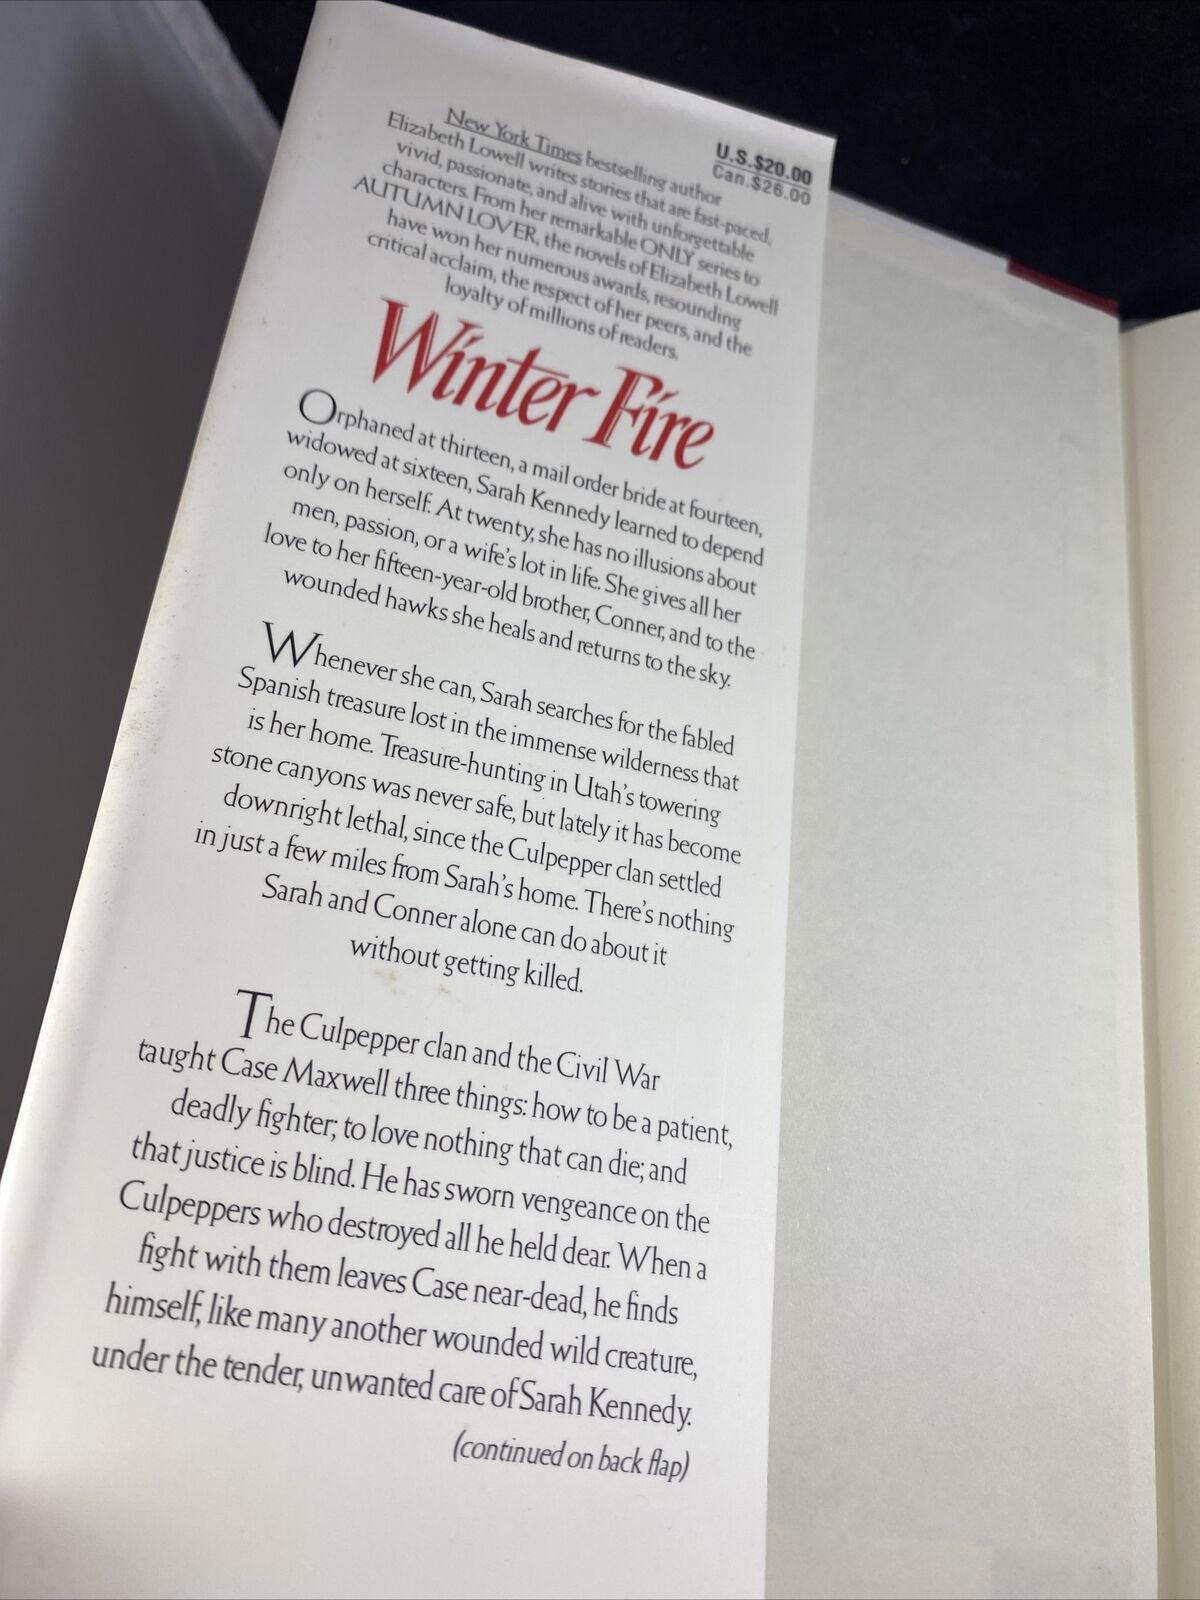 U.S.$20.00
Can.$26.00
New York Times bestselling author
Elizabeth Lowell writes stories that are fast-paced,
vivid, passionate, and alive with unforgettable
characters. From her remarkable ONLY series to
AUTUMN LOVER, the novels of Elizabeth Lowell
have won her numerous awards, resounding
critical acclaim, the respect of her peers, and the
loyalty of millions of readers.
Winter Fire
Orphaned at thirteen, a mail order bride at fourteen,
widowed at sixteen, Sarah Kennedy learned to depend
only on herself. At twenty, she has no illusions about
men, passion, or a wife's lot in life. She gives all her
love to her fifteen-year-old brother, Conner, and to the
wounded hawks she heals and returns to the sky.
Whenever she can, Sarah searches for the fabled
Spanish treasure lost in the immense wilderness that
is her home. Treasure-hunting in Utah's towering
stone canyons was never safe, but lately it has become
downright lethal, since the Culpepper clan settled
in just a few miles from Sarah's home. There's nothing
Sarah and Conner alone can do about it
without getting killed.
The Culpepper clan and the Civil War
taught Case Maxwell three things: how to be a patient,
deadly fighter; to love nothing that can die; and
that justice is blind. He has sworn vengeance on the
Culpeppers who destroyed all he held dear. When a
fight with them leaves Case near-dead, he finds
himself, like many another wounded wild creature,
under the tender, unwanted care of Sarah Kennedy.
(continued on back flap)